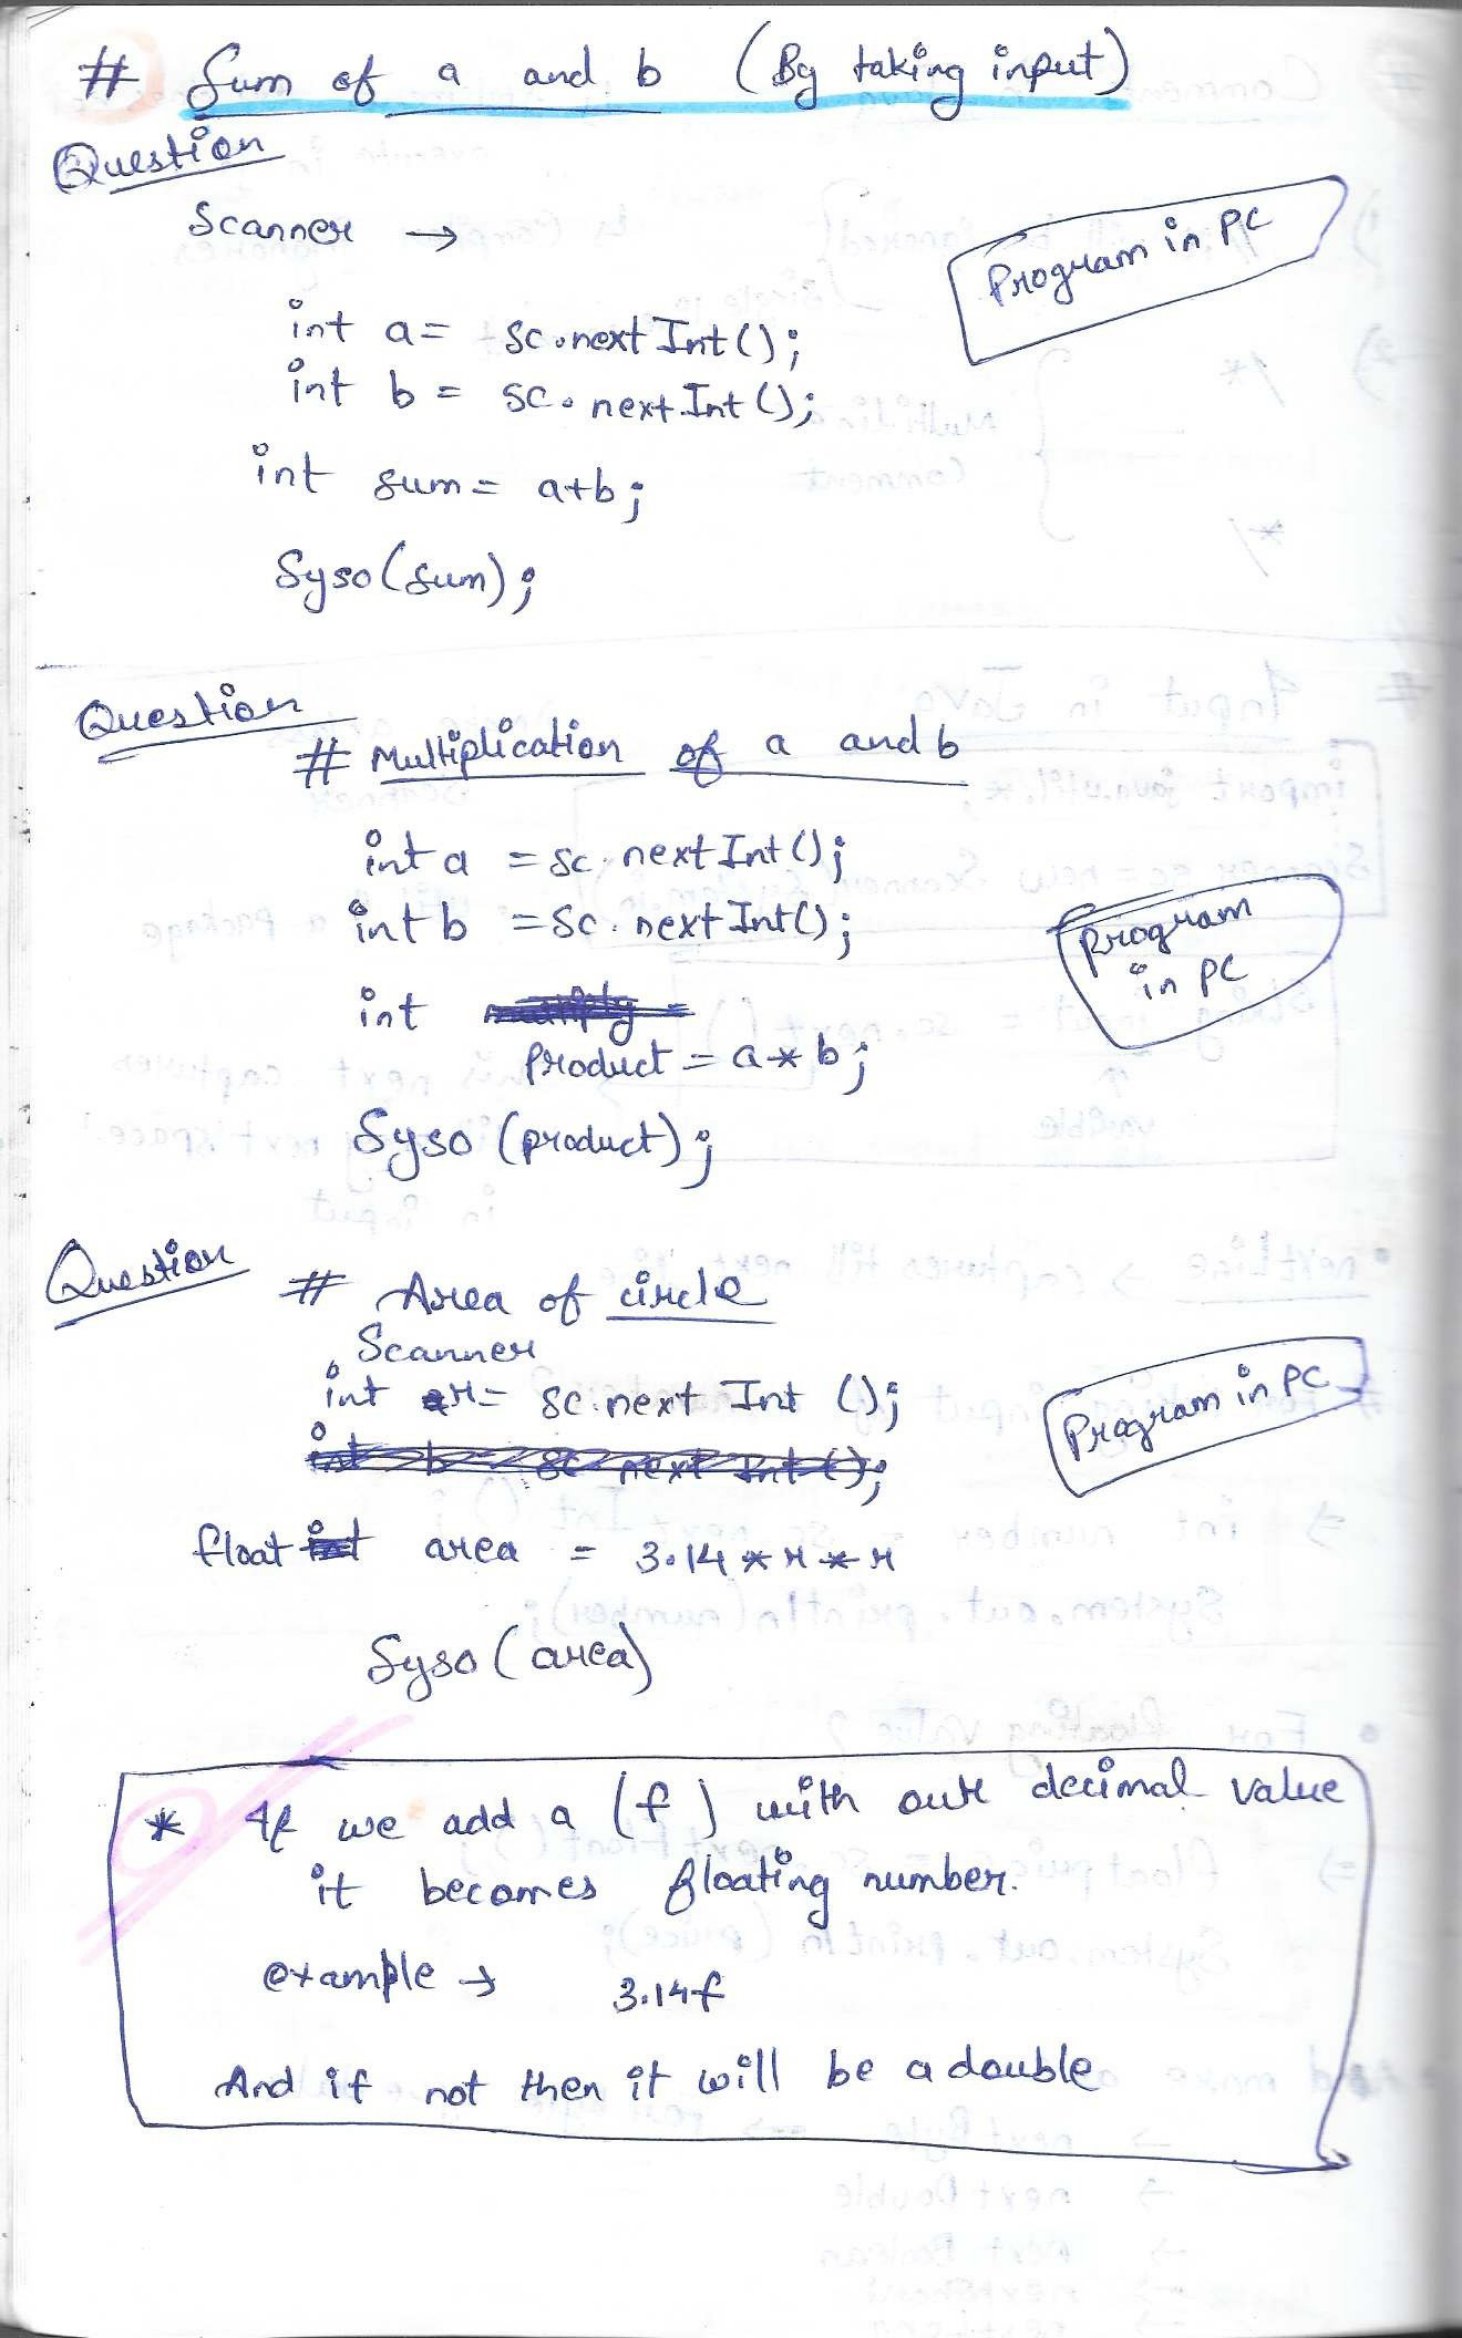 # Sum of a and b (By taking input)
Question
Scanner →
Program in PC
int a = sc.nextInt();
int b = sc.nextInt();
int sum = a+b;
Syso(sum);
Question
# Multiplication of a and b
int a = sc.nextInt();
int b = sc.nextInt();
Program
in PC
int
Product = a * b;
Syso (product);
Question # Area of circle
Scanner
int r = sc.next Int ();
Program in PC
int b = sc next Int();
float int area = 3.14 * r * r
Syso (area)
* If we add a (f) with our decimal value
it becomes floating number.
example → 3.14f
And if not then it will be a double